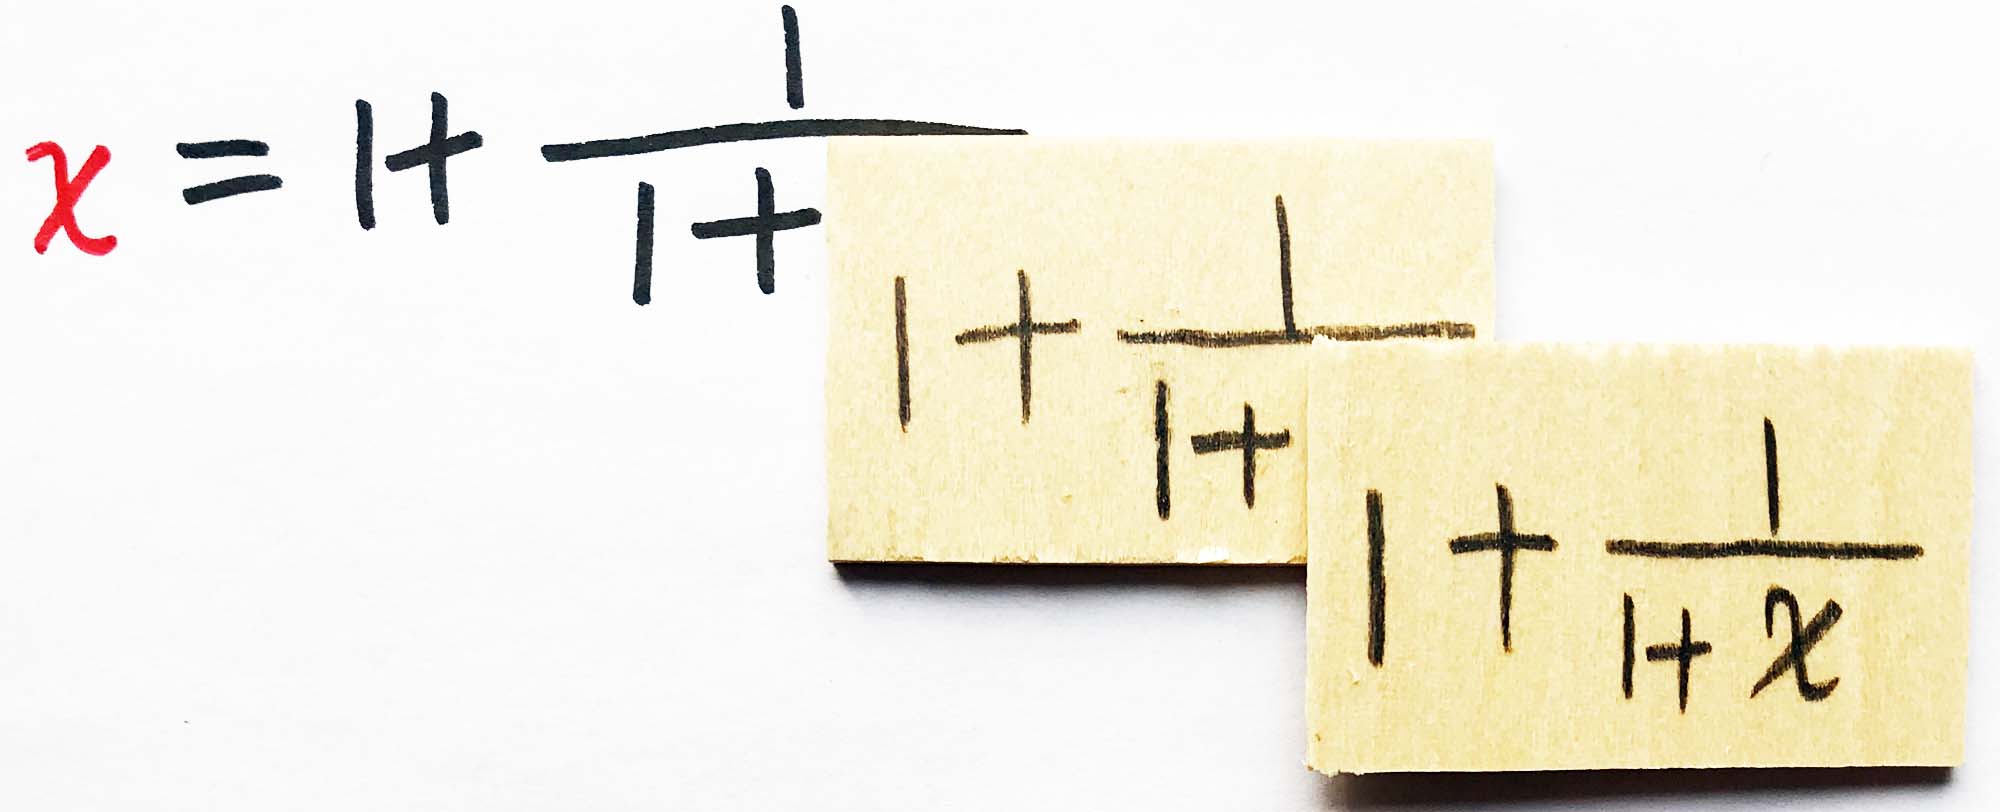 x = 1 + 1
1 +
1 + 1
1 +
1 + 1
1 + x